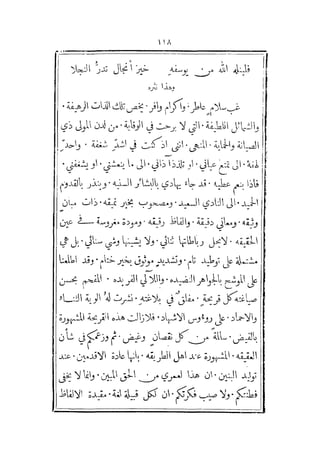 ١١٨
فليبلغه الله من يوسفه خير أنجال تدر النجلا
وهذا نثره
غب سلام عاطر. واكرام وافر. يخص تلك الذات الرهيفة.
والشمائل اللطيفة. التي لا برحت في الوقاية. من لدن المولى ذي
الصيانة والحماية. المنهى. انني اذ كنت في اشد شغفة. واحد
لهفة. الى تمتع عياني. او تلذذ اذاني. الى ما ينعشني. او يشغفني.
فاذا بنعم عطيه. قد جاء يهادي بالبشائر السنيه. وينذر بالقدوم
الحميد. الى النادي السعيد. ومصحوب بخير نميقه. ذات مبان
وثيقه. ومعاني دقيقة. والفاظ رقيقه. ومودة مغروسة في عين
الحقيقه. لا يحل رباطاتها ثنائي. ولا يشينها وشي سنائي. بل هي
مشتملة على توطيد تام. وتشديد موثوق بخير ختام. وقد اطلعنا
على الموشح بالجواهر النضيده. واللآلي الفريده. المفحم بحسن
صياغته كل قريحة. مفلق في بلاغته. نشرت له الوية الثناء
والاحماد. على رووس الاشهاد. فلا زالت هذه القريحة المشهورة
بالفيض. سالمة من كل نقصان وغيض. ثم وزعمكم في شأن
العقيقه. المشهورة عند اهل الطريقه. بانها عادة الاقدمين. عند
توليد البنين. ان هذا لعمري من الحق المبين. وانما لا يخفى
فطنتكم. ولا صيب فكرتكم. ان لكل قبيلة لغة. مقيدة الالفاظ